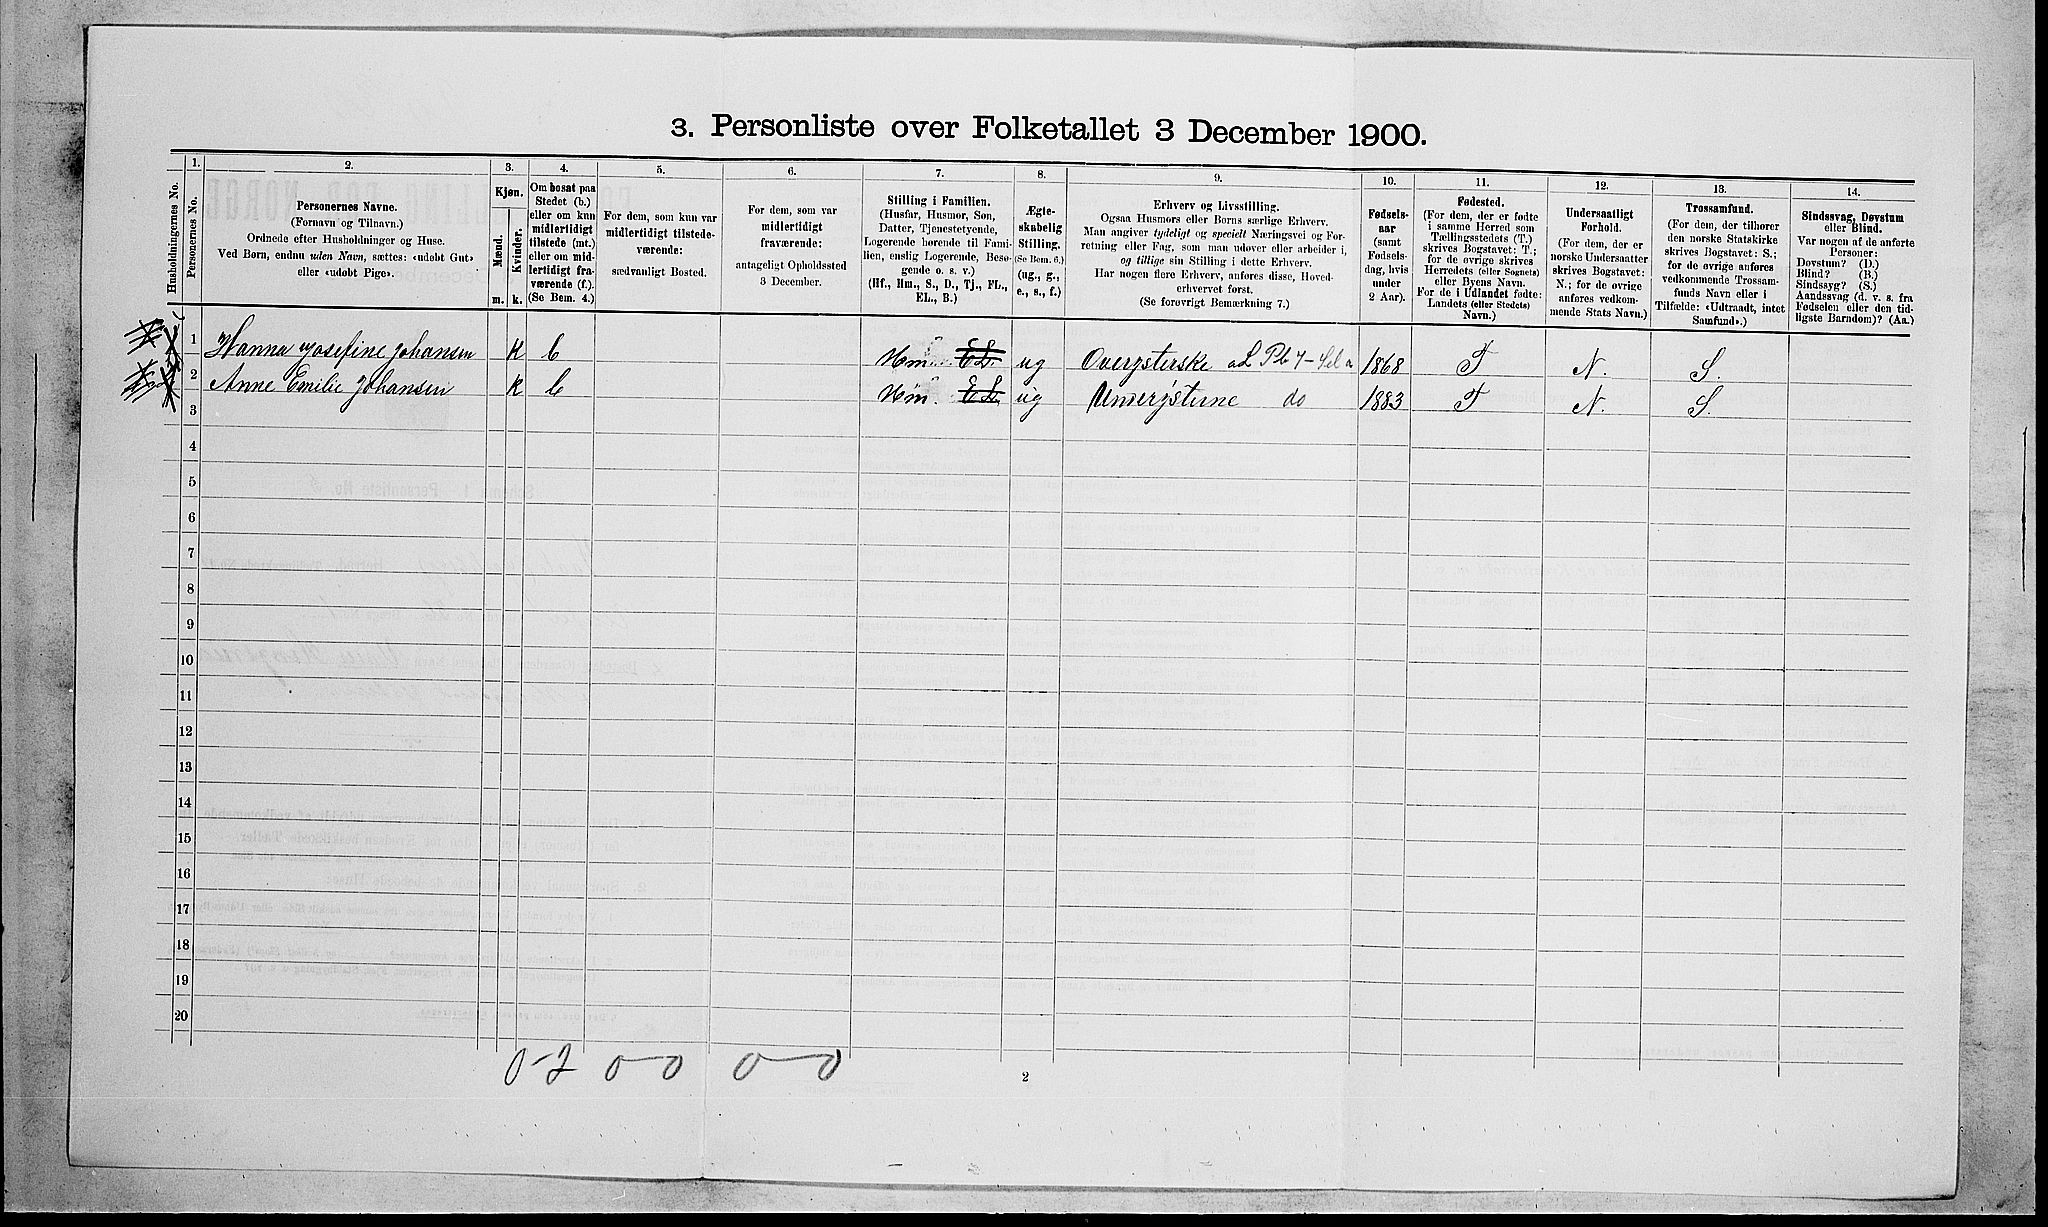 3. Personliste over Folketallet 3 December 1900.
Husholdningernes No.
1.
Personernes No.
2.
Personernes Navne.
(Fornavn og Tilnavn.)
Ordnede efter Husholdninger og Huse.
Ved Børn, endnu uden Navn, sættes: «udøbt Gut»
eller «udøbt Pige».
3.
Kjøn.
Mænd.
Kvinder.
m.
k.
4.
Om bosat paa
Stedet (b.)
eller om kun
midlertidigt
tilstede (mt.)
eller om mid-
lertidigt fra-
værende (f.).
(Se Bem. 4.)
5.
For dem, som kun var
midlertidigt tilstede-
værende:
sædvanligt Bosted.
6.
For dem, som var
midlertidigt
fraværende:
antageligt Opholdssted
3 December.
7.
Stilling i Familien.
(Husfar, Husmor, Søn,
Datter, Tjenestetyende,
Logerende hørende til Fami-
lien, enslig Logerende, Besø-
gende o. s. v.)
(Hf., Hm., S., D., Tj., FL.,
EL., B.)
8.
Ægte-
skabelig
Stilling.
(Se Bem. 6.)
(ug., g.,
e., s., f.)
9.
Erhverv og Livsstilling.
Ogsaa Husmors eller Børns særlige Erhverv.
Man angiver tydeligt og specielt Næringsvei og For-
retning eller Fag, som man udøver eller arbeider i,
og tillige sin Stilling i dette Erhverv.
Har nogen flere Erhverv, anføres disse, Hoved-
erhvervet først.
(Se forøvrigt Bemærkning 7.)
10.
Fødsels-
aar
(samt
Fødsels-
dag, hvis
under
2 Aar).
11.
Fødested.
(For dem, der er fødte
i samme Herred som
Tællingsstedets (T.)
skrives Bogstavet: T.;
for de øvrige skrives
Herredets (eller Sognets)
eller Byens Navn.
For de i Udlandet fødte:
Landets (eller Stedets)
Navn.)
12.
Undersaatligt
Forhold.
(For dem, der er
norske Undersaatter
skrives Bogstavet:
N.; for de øvrige
anføres vedkom-
mende Stats Navn.)
13.
Trossamfund.
(For dem, der tilhører
den norske Statskirke
skrives Bogstavet: S.;
for de øvrige anføres
vedkommende Trossam-
funds Navn eller i
Tilfælde: «Udtraadt, intet
Samfund».)
14.
Sindssvag, Døvstum
eller Blind.
Var nogen af de anførte
Personer:
Døvstum? (D.)
Blind? (B.)
Sindssyg? (S.)
Aandssvag (d. v. s. fra
Fødselen eller den tid-
ligste Barndom)? (Aa.)
1 Hanna Josefine Johansen K b Hm. EL. ug 1868 T N. S.
2 Anne Emilie Johansen K b Hm. EL. ug do 1883 T N. S.
3
4
5
6
7
8
9
10
11
12
13
14
15
16
17
18
19
20
0-2 0-0 0-0
2